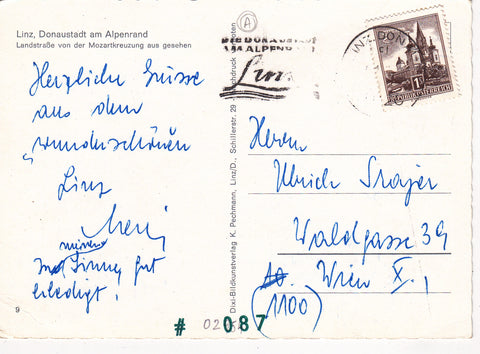 Linz, Donaustadt am Alpenrand
Landstraße von der Mozartkreuzung aus gesehen
Herzliche Grüsse
aus dem
wunderschönen
Linz
gut
erledigt!
9
Dixi-Bildkunstverlag K. Pechmann, Linz/D., Schillerstr. 29
A
DIE DONAUSTADT
AM ALPENRAND
Linz
LINZ DON
REPUBLIK ÖSTERREICH
Herrn
Ulrich Srajer
Waldgasse 39
Wien X.,
(1100)
# 087